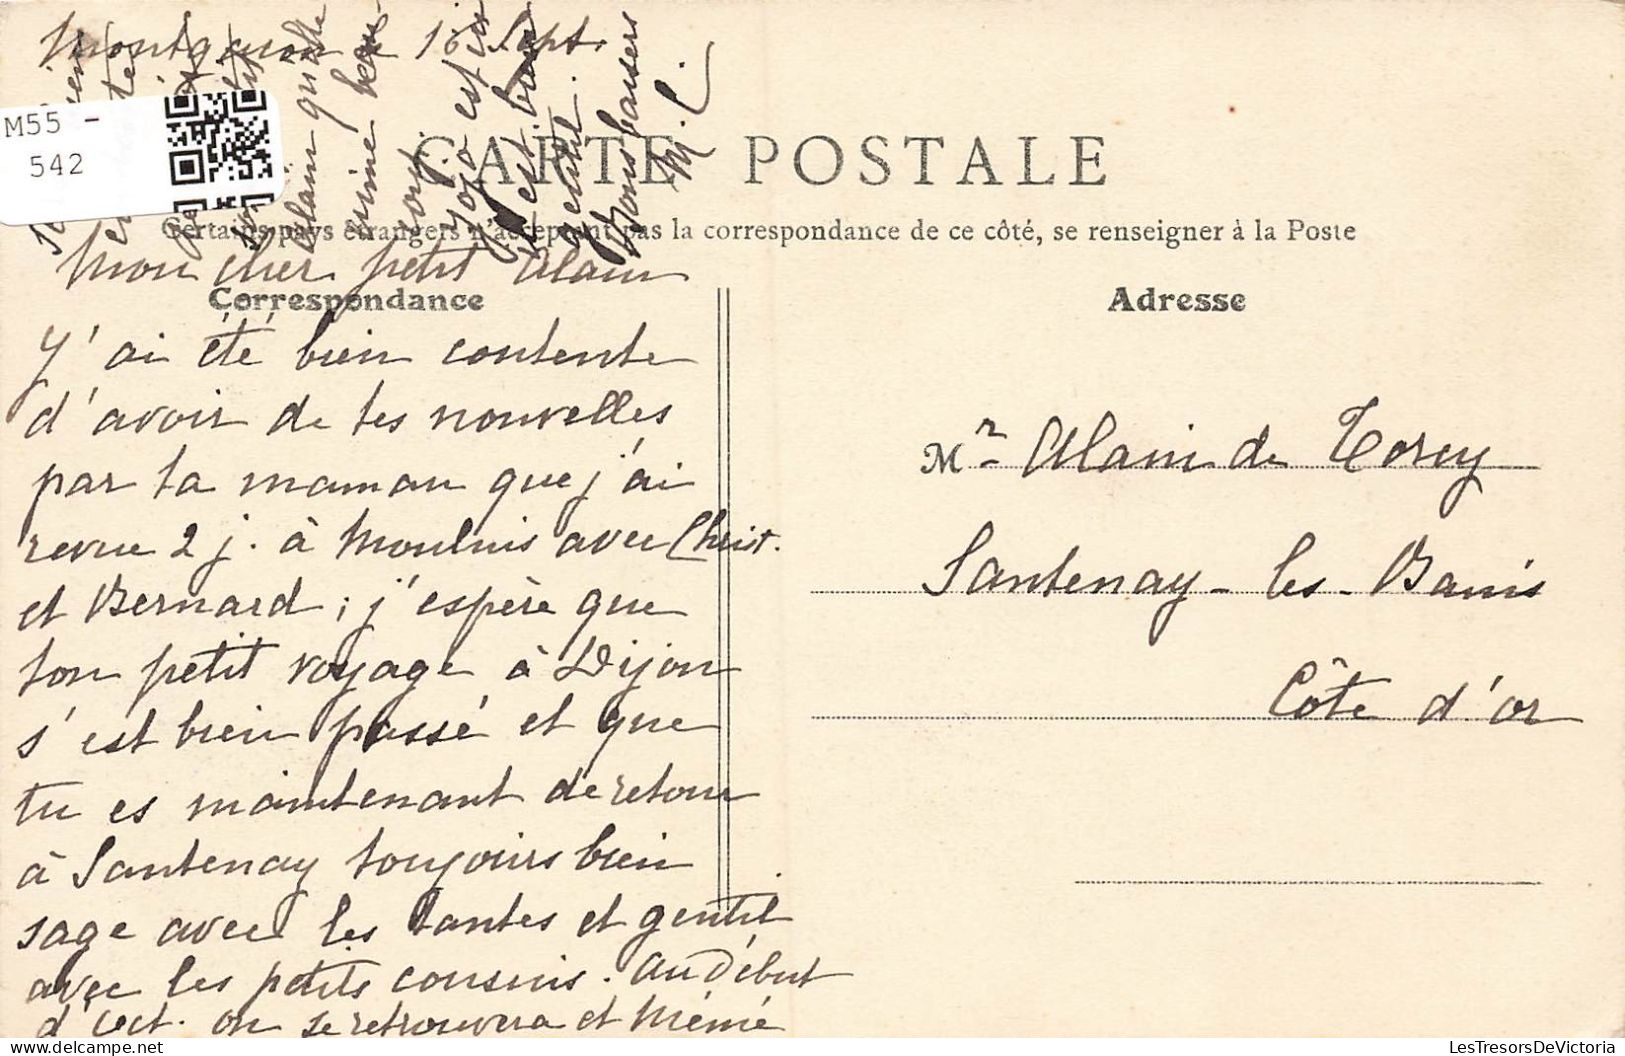 16 Sept.
M55 -
542
CARTE POSTALE
Certains pays étrangers n'acceptent pas la correspondance de ce côté, se renseigner à la Poste
Mon cher petit Alain
Correspondance
J'ai été bien contente
d'avoir de tes nouvelles
par ta maman que j'ai
revue 2 j. à Moulins avec Christ.
et Bernard ; j'espère que
ton petit voyage à Dijon
s'est bien passé et que
tu es maintenant de retour
à Santenay toujours bien
sage avec les tantes et gentil
avec les petits cousins. Au début
d'Oct. on se retrouvera et Mémé
Alain qu'elle
aime
Jojo est ici
il est bien
gentil.
Bons baisers
M.
Adresse
Mr Alain de Torcy
Santenay-les-Bains
Côte d'or
LesTresorsDeVictoria